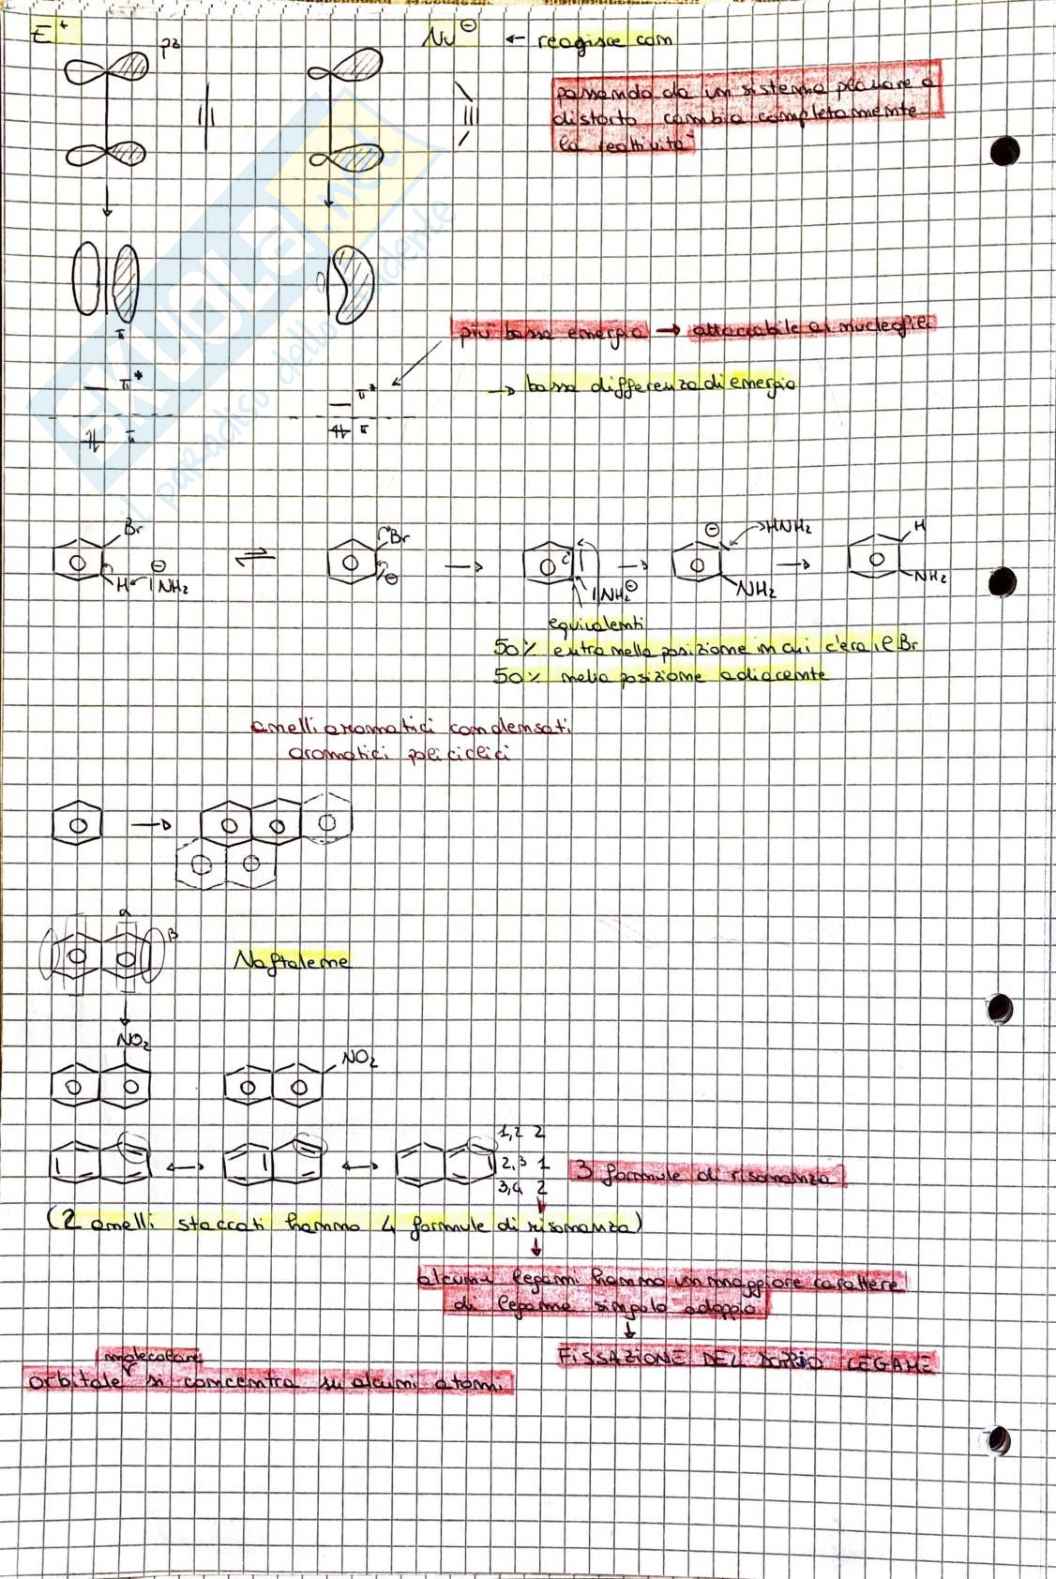 E⁺
pz
Nu⊖ ← reagisce con
passando da un sistema planare a
distorto cambia completamente
la reattività
SKUOLA.net
il paradiso dello studente
π
più bassa energia → attaccabile ai nucleofili
π*
π*
→ bassa differenza di energia
π
π
Br
H
⊖
|NH₂
⇌
Br
⊖
→
|NH₂⊖
→
⊖
HNH₂
NH₂
→
H
NH₂
equivalenti
50% entra nella posizione in cui c'era il Br
50% nella posizione adiacente
anelli aromatici condensati
aromatici policiclici
→
α
β
Naftalene
NO₂
NO₂
1,2 2
↔
↔
2,3 1
3 formule di risonanza
3,4 2
(2 anelli staccati hanno 4 formule di risonanza)
alcuni legami hanno un maggiore carattere
di legame singolo o doppio
FISSAZIONE DEL DOPPIO LEGAME
molecolare
orbitale si concentra su alcuni atomi